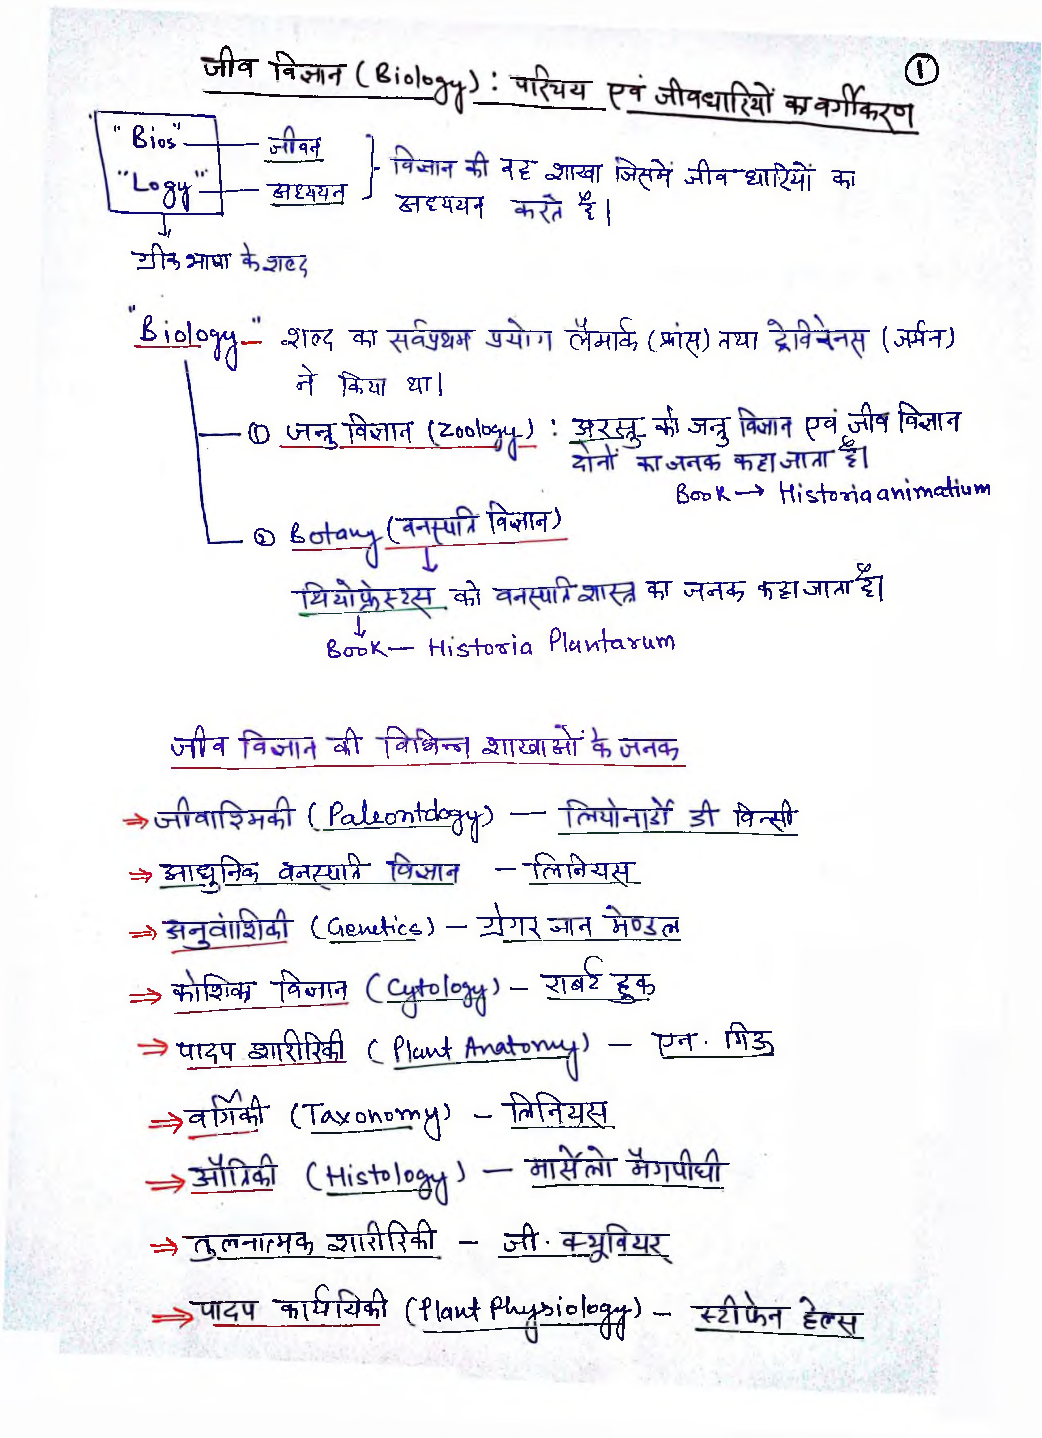 जीव विज्ञान (Biology) : परिचय एवं जीवधारियों का वर्गीकरण
①
"Bios" — जीवन
"Logy" — अध्ययन
विज्ञान की वह शाखा जिसमें जीव धारियों का
अध्ययन करते है।
ग्रीक भाषा के शब्द
"Biology" शब्द का सर्वप्रथम प्रयोग लैमार्क (फ्रांस) तथा ट्रेविरेनस (जर्मन)
ने किया था।
① जन्तु विज्ञान (Zoology) : अरस्तु को जन्तु विज्ञान एवं जीव विज्ञान
दोनों का जनक कहा जाता है।
Book → Historia animatium
② Botany (वनस्पति विज्ञान)
थियोफ्रेस्टस को वनस्पति शास्त्र का जनक कहा जाता है।
Book — Historia Plantarum
जीव विज्ञान की विभिन्न शाखाओं के जनक
⇒ जीवाश्मिकी (Paleontology) — लियोनार्डो डी विन्सी
⇒ आधुनिक वनस्पति विज्ञान – लिनियस
⇒ अनुवांशिकी (Genetics) – ग्रेगर जान मेण्डल
⇒ कोशिका विज्ञान (Cytology) – राबर्ट हुक
⇒ पादप शारीरिकी (Plant Anatomy) – एन. ग्रिऊ
⇒ वर्गिकी (Taxonomy) – लिनियस
⇒ औतिकी (Histology) – मार्सेलो मैगपीघी
⇒ तुलनात्मक शारीरिकी – जी. क्यूवियर
⇒ पादप कार्यायिकी (Plant Physiology) – स्टीफेन हेल्स